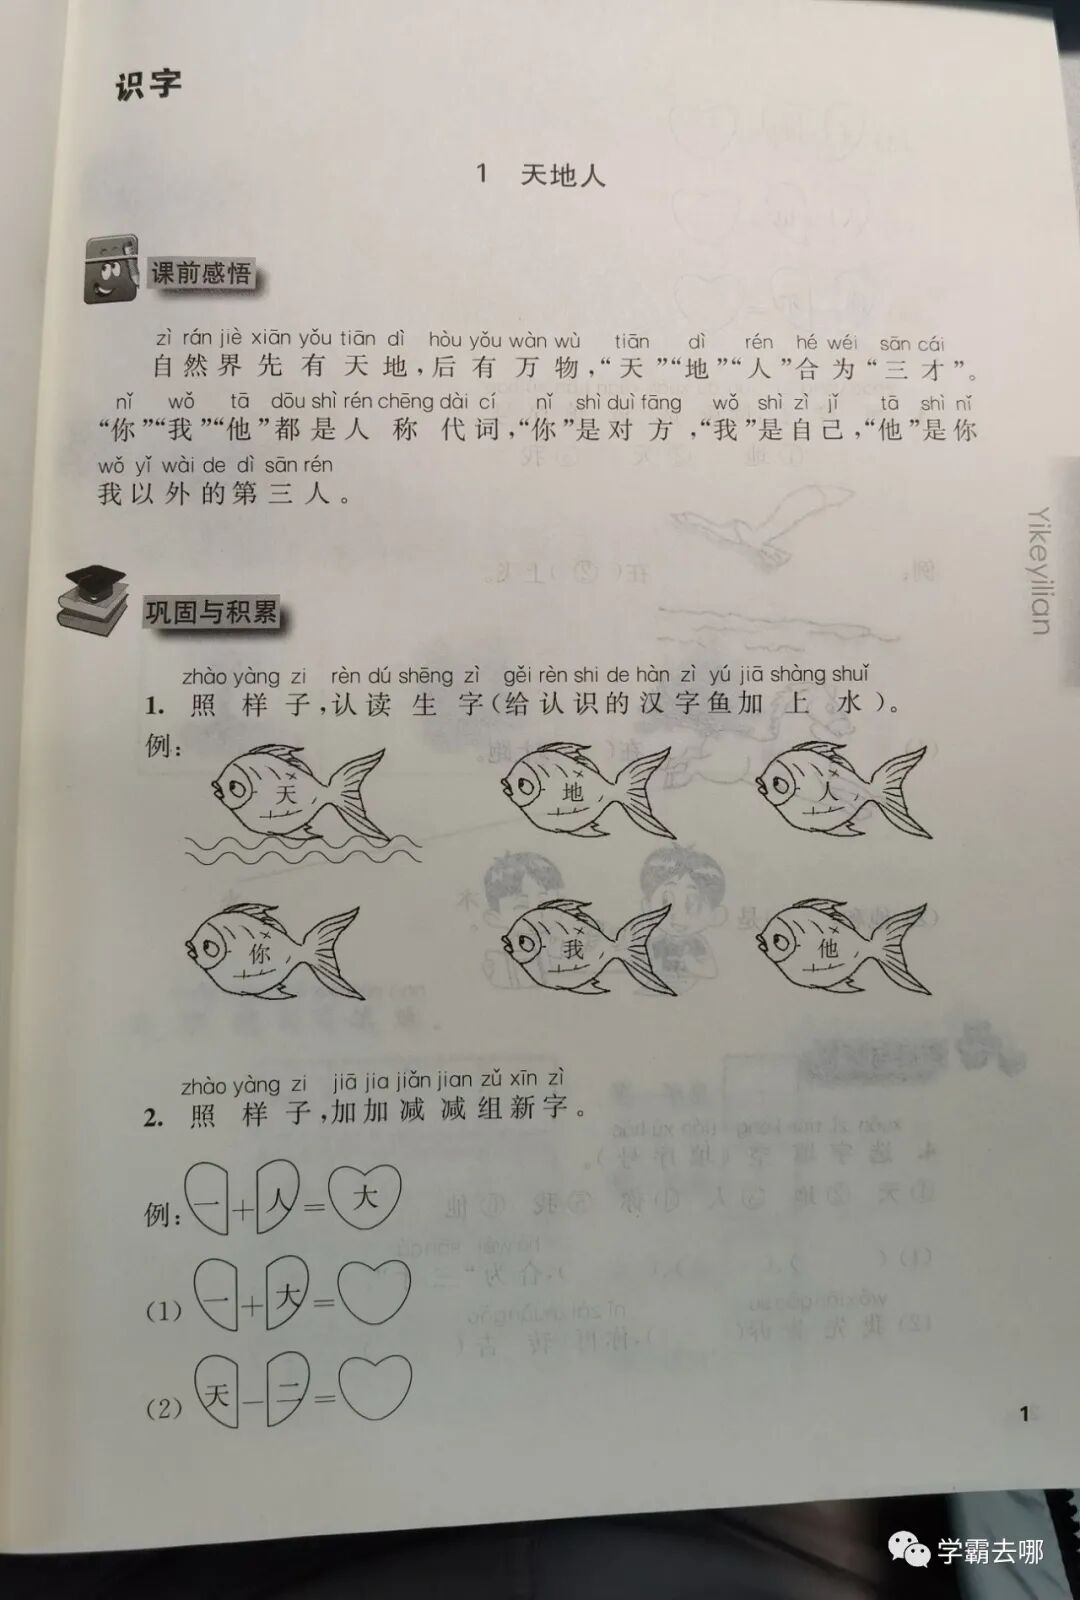 识字
1 天地人
课前感悟
zì rán jiè xiān yǒu tiān dì hòu yǒu wàn wù tiān dì rén hé wéi sān cái
自然界先有天地,后有万物,“天”“地”“人”合为“三才”。
nǐ wǒ tā dōu shì rén chēng dài cí nǐ shì duì fāng wǒ shì zì jǐ tā shì nǐ
“你”“我”“他”都是人称代词,“你”是对方,“我”是自己,“他”是你
wǒ yǐ wài de dì sān rén
我以外的第三人。
Yikeyilian
巩固与积累
zhào yàng zi rèn dú shēng zì gěi rèn shi de hàn zì yú jiā shàng shuǐ
1. 照样子,认读生字(给认识的汉字鱼加上水)。
例:
天 地 人
你 我 他
zhào yàng zi jiā jia jiǎn jian zǔ xīn zì
2. 照样子,加加减减组新字。
例: 一+人=大
(1) 一+大=
(2) 天-二=
1
学霸去哪